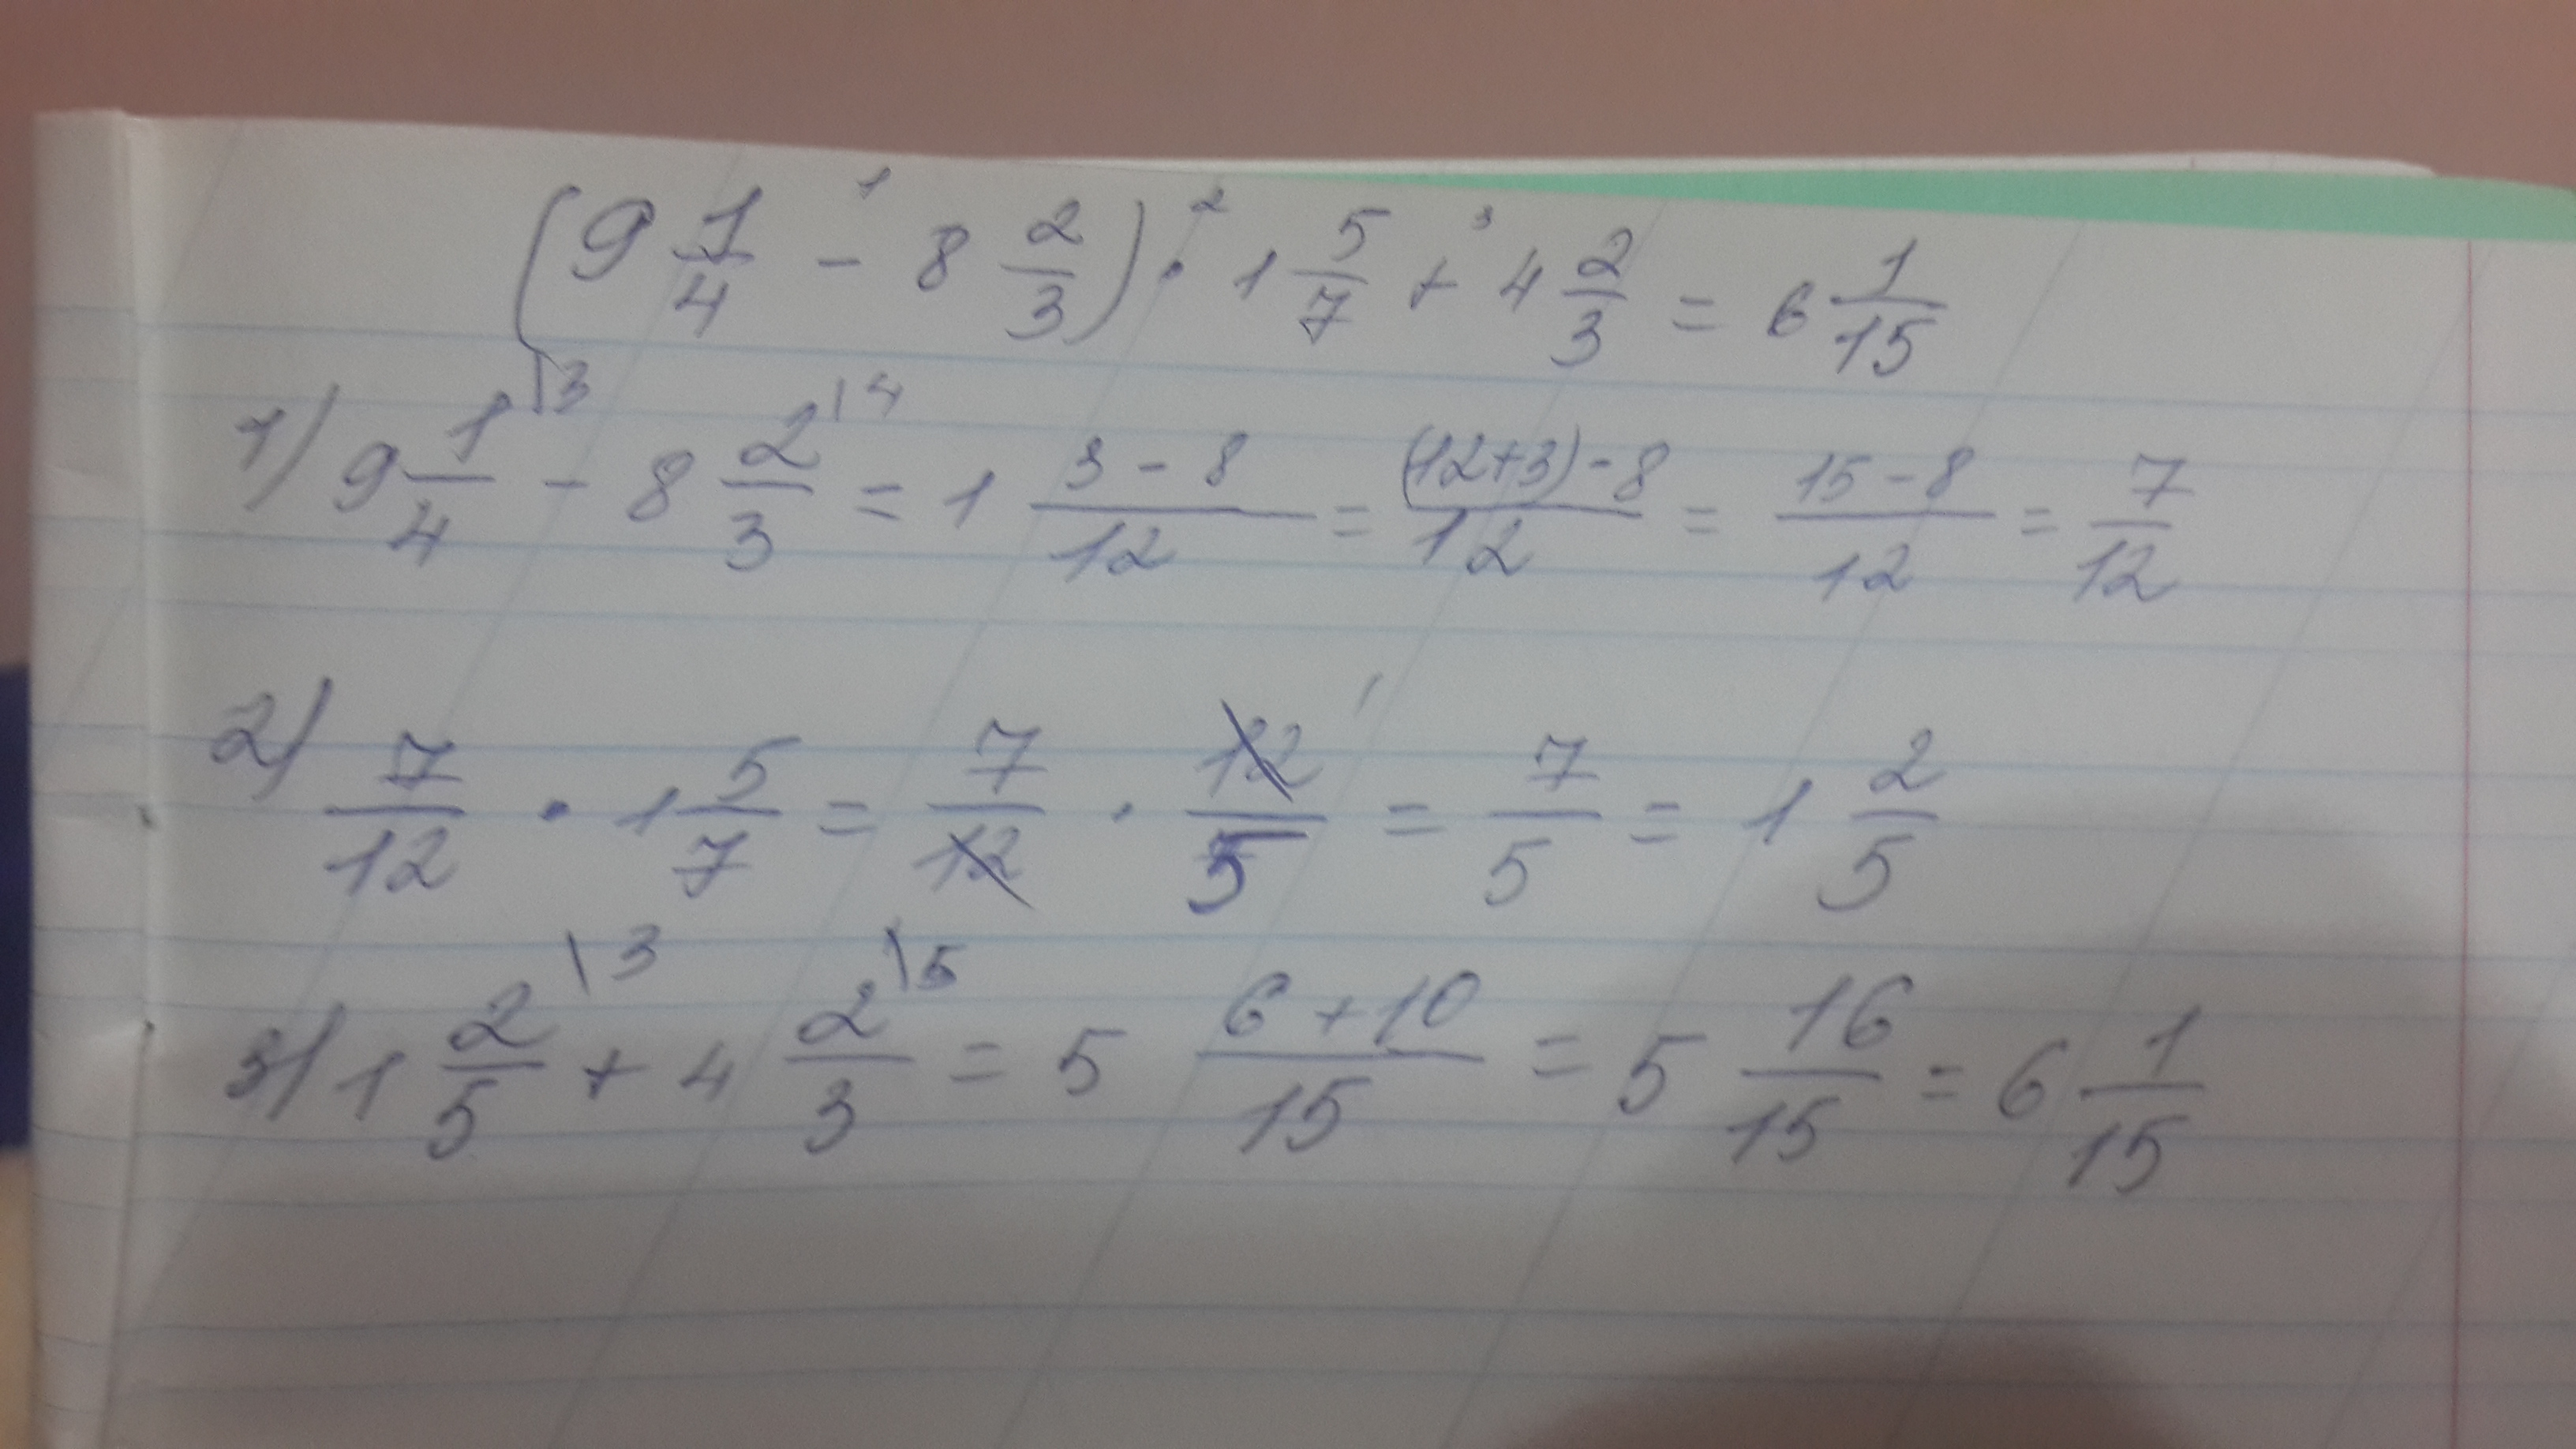 (9 1/4 - 8 2/3) · 1 5/7 + 4 2/3 = 6 1/15
1) 9 1/4 - 8 2/3 = 1 (3 - 8)/12 = ((12+3) - 8)/12 = (15 - 8)/12 = 7/12
2) 7/12 · 1 5/7 = 7/12 · 12/5 = 7/5 = 1 2/5
3) 1 2/5 + 4 2/3 = 5 (6 + 10)/15 = 5 16/15 = 6 1/15